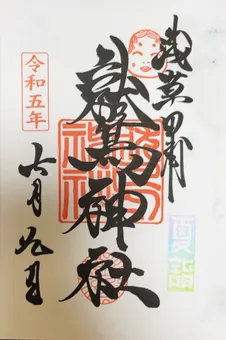 浅草田甫
鷲神社
夏詣
令和五年
六月九日